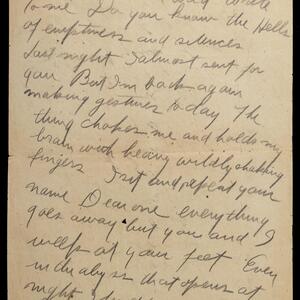 to me Do you know the Hells
of emptiness and silences
Last night I almost sent for
you But I'm back again
making gestures today The
thing chokes me and holds my
brain with heavy wildly shaking
fingers I sit and repeat your
name Dear one everything
goes away but you and I
weeps at your feet Even
in the abyss that opens at
night